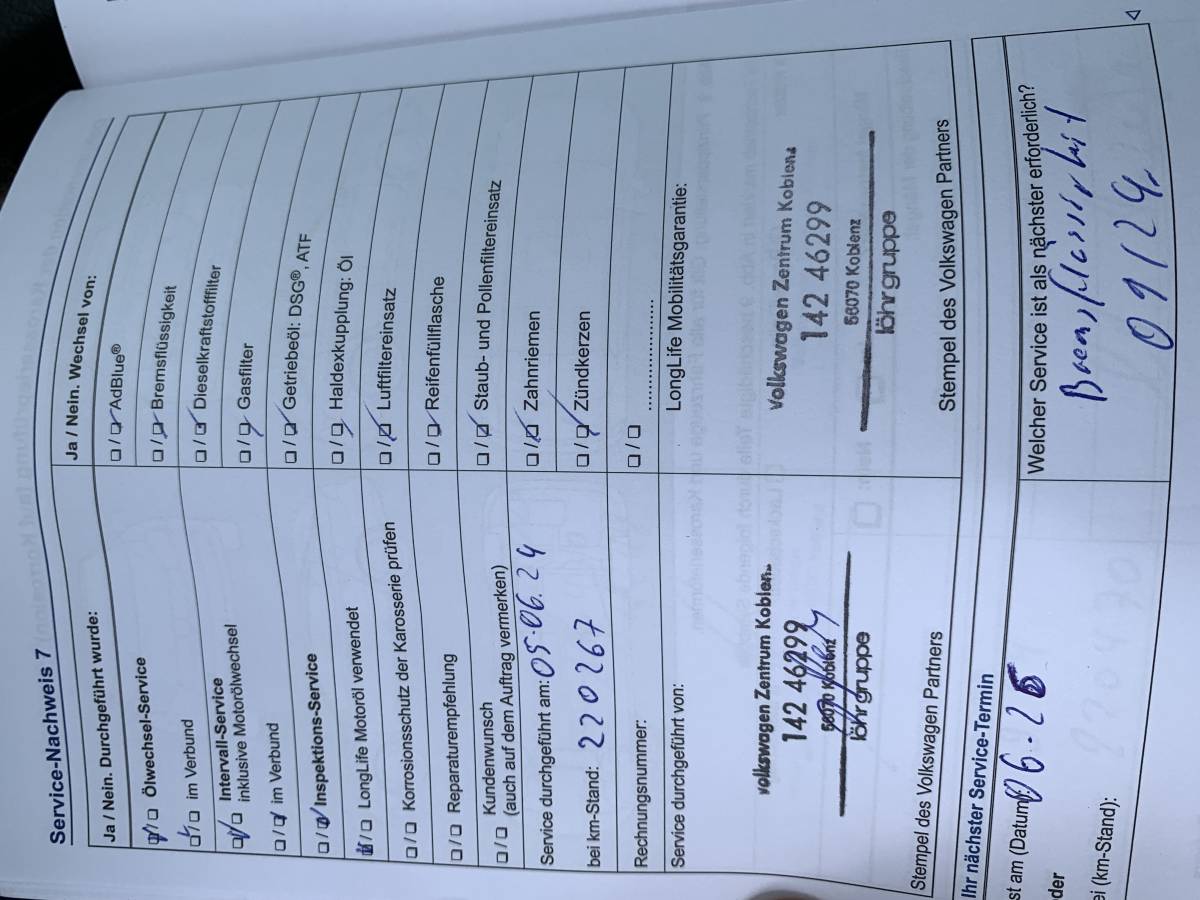 Service-Nachweis 7
Ja / Nein. Durchgeführt wurde:
☐ / ☐ Ölwechsel-Service
☐ / ☐ im Verbund
☐ / ☐ Intervall-Service
inklusive Motorölwechsel
☐ / ☐ im Verbund
☐ / ☐ Inspektions-Service
☐ / ☐ LongLife Motoröl verwendet
☐ / ☐ Korrosionsschutz der Karosserie prüfen
☐ / ☐ Reparaturempfehlung
☐ / ☐ Kundenwunsch
(auch auf dem Auftrag vermerken)
Service durchgeführt am: 05.06.24
bei km-Stand: 220267
Rechnungsnummer:
Service durchgeführt von:
Volkswagen Zentrum Koblenz
142 46299
56070 Koblenz
löhrgruppe
Stempel des Volkswagen Partners
Ja / Nein. Wechsel von:
☐ / ☐ AdBlue®
☐ / ☐ Bremsflüssigkeit
☐ / ☐ Dieselkraftstofffilter
☐ / ☐ Gasfilter
☐ / ☐ Getriebeöl: DSG®, ATF
☐ / ☐ Haldexkupplung: Öl
☐ / ☐ Luftfiltereinsatz
☐ / ☐ Reifenfüllflasche
☐ / ☐ Staub- und Pollenfiltereinsatz
☐ / ☐ Zahnriemen
☐ / ☐ Zündkerzen
☐ / ☐ ......................
LongLife Mobilitätsgarantie:
Volkswagen Zentrum Koblenz
142 46299
56070 Koblenz
löhrgruppe
Stempel des Volkswagen Partners
Ihr nächster Service-Termin
st am (Datum): 06.26
der
ei (km-Stand):
Welcher Service ist als nächster erforderlich?
Bremsflüssigkeit
09/24